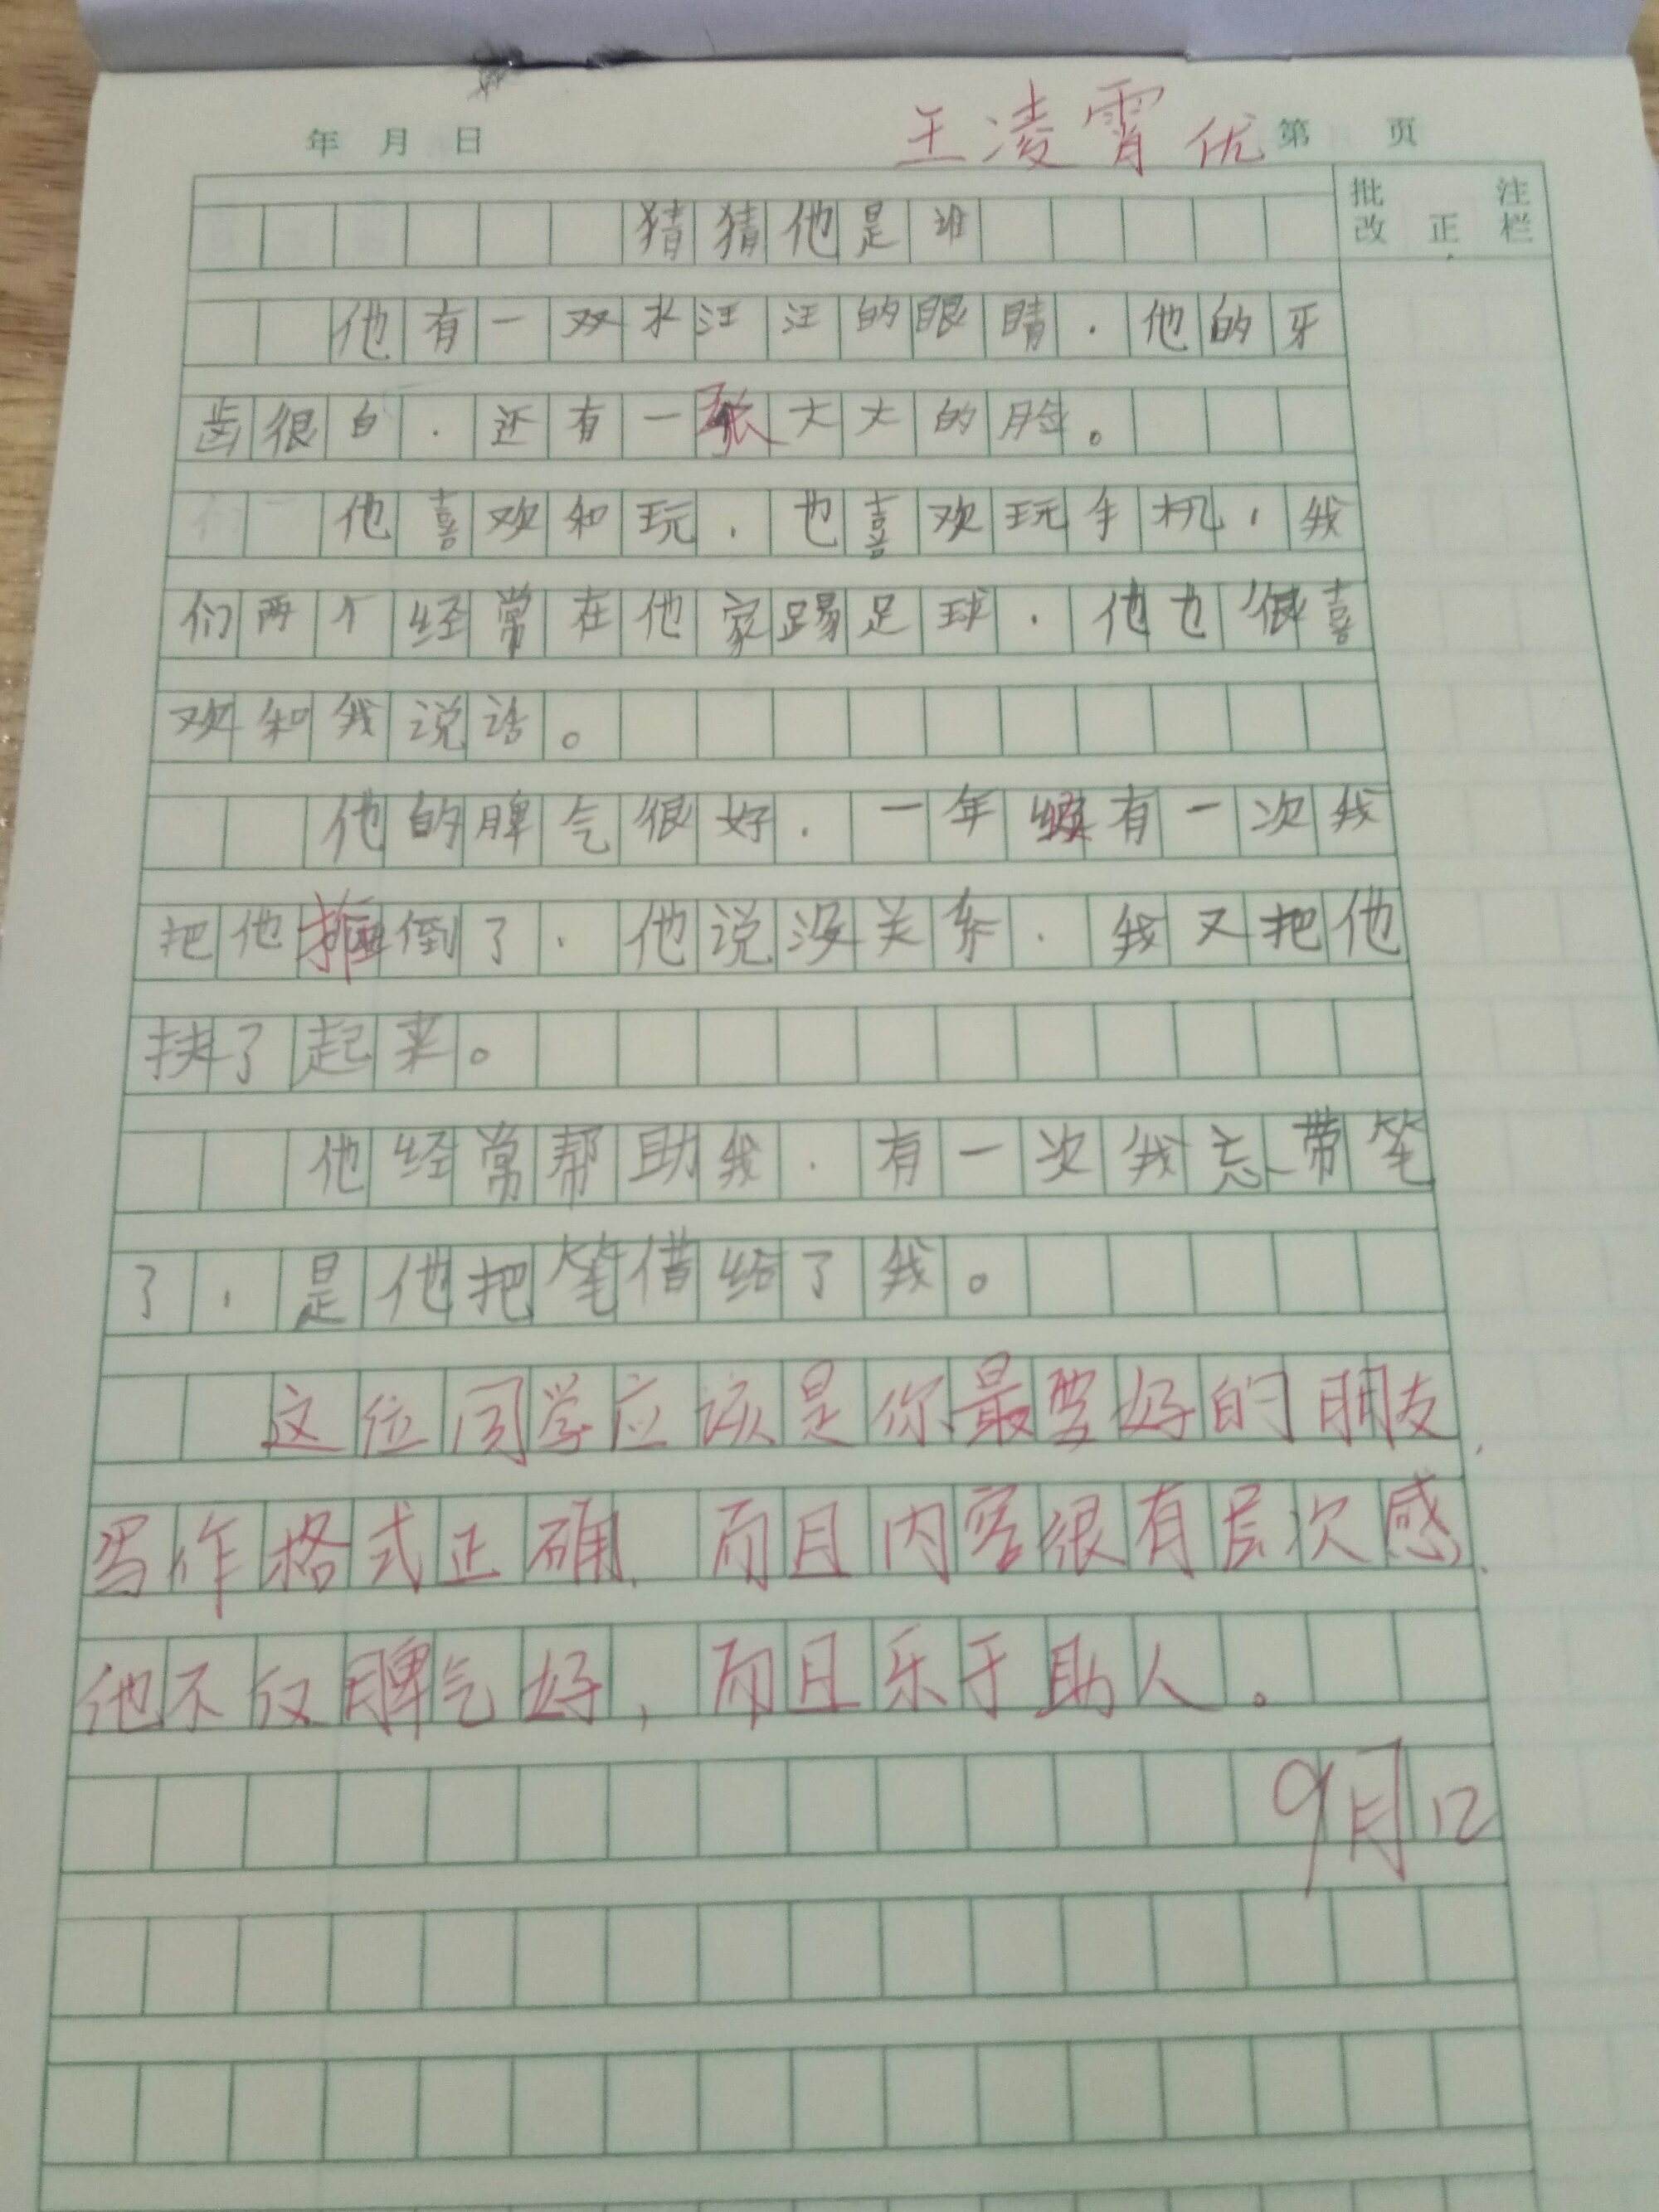 王凌霄 优
年 月 日 第 页
批 注
改 正 栏
猜猜他是谁
他有一双水汪汪的眼睛.他的牙
齿很白.还有一张大大的脸。
他喜欢和玩.也喜欢玩手机,我
们两个经常在他家踢足球.他也很喜
欢和我说话。
他的脾气很好.一年级有一次我
把他撞倒了.他说没关系.我又把他
扶了起来。
他经常帮助我.有一次我忘带笔
了,是他把笔借给了我。
这位同学应该是你最要好的朋友,
写作格式正确,而且内容很有层次感,
他不仅脾气好,而且乐于助人。
9月12